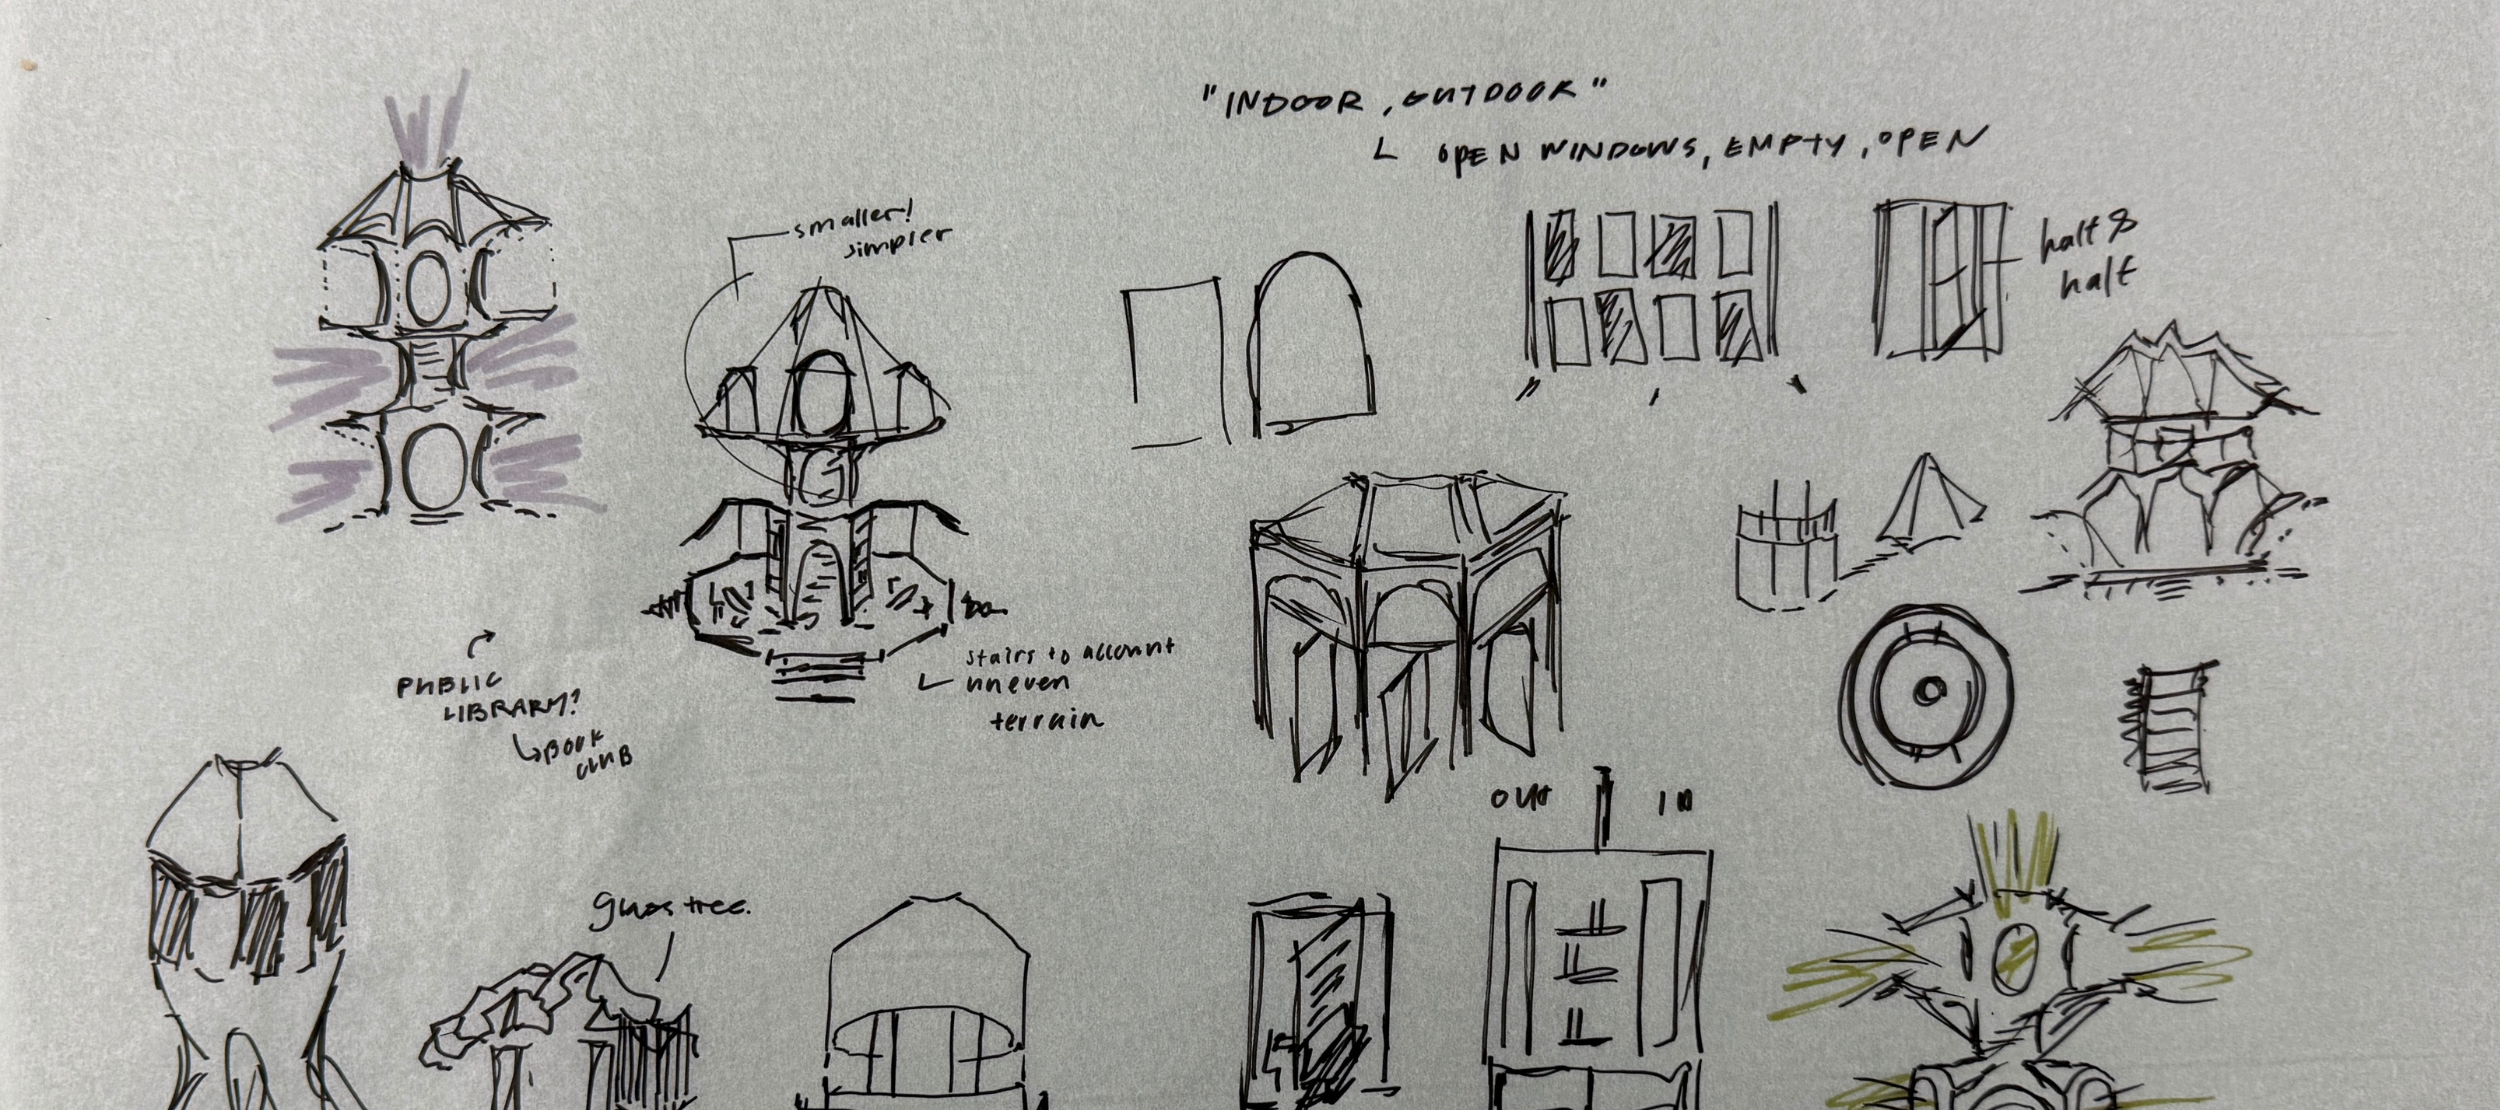 "INDOOR, OUTDOOR"
OPEN WINDOWS, EMPTY, OPEN
smaller!
simpler
half &
half
stairs to account
uneven
terrain
PUBLIC
LIBRARY?
BOOK
CLUB
OUT IN
glass tree.